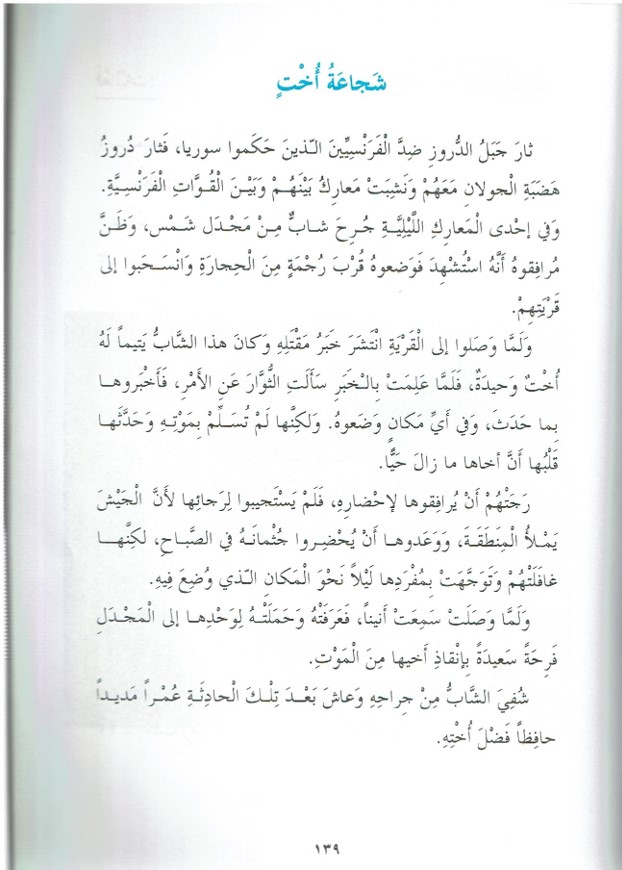 شَجاعَةُ أُخْتٍ
ثارَ جَبَلُ الدُّروزِ ضِدَّ الْفَرَنْسِيِّينَ الّذينَ حَكَموا سوريا، فَثارَ دُروزُ
هَضَبَةِ الْجولانِ مَعَهُمْ وَنَشِبَتْ مَعارِكُ بَيْنَهُمْ وَبَيْنَ الْقُوَّاتِ الْفَرَنْسِيَّةِ.
وَفي إحْدى الْمَعارِكِ اللَّيْلِيَّةِ جُرِحَ شابٌّ مِنْ مَجْدَل شَمْس، وَظَنَّ
مُرافِقوهُ أَنَّهُ اسْتُشْهِدَ فَوَضَعوهُ قُرْبَ رُجْمَةٍ مِنَ الْحِجارَةِ وَانْسَحَبوا إلى
قَرْيَتِهِمْ.
وَلَمَّا وَصَلوا إلى الْقَرْيَةِ انْتَشَرَ خَبَرُ مَقْتَلِهِ وَكانَ هذا الشَّابُّ يَتيماً لَهُ
أُخْتٌ وَحيدَةٌ، فَلَمَّا عَلِمَتْ بِالْخَبَرِ سَأَلَتِ الثُّوَّارَ عَنِ الأَمْرِ، فَأَخْبَروها
بِما حَدَثَ، وَفي أَيِّ مَكانٍ وَضَعوهُ. وَلكِنَّها لَمْ تُسَلِّمْ بِمَوْتِهِ وَحَدَّثَها
قَلْبُها أَنَّ أخاها ما زالَ حَيًّا.
رَجَتْهُمْ أَنْ يُرافِقوها لإحْضارِهِ، فَلَمْ يَسْتَجيبوا لِرَجائِها لأَنَّ الْجَيْشَ
يَمْلأُ الْمِنَطَقَةَ، وَوَعَدوها أَنْ يُحْضِروا جُثْمانَهُ في الصَّباحِ، لكِنَّها
غافَلَتْهُمْ وَتَوَجَّهَتْ بِمُفْرَدِها لَيْلاً نَحْوَ الْمَكانِ الّذي وُضِعَ فيهِ.
وَلَمَّا وَصَلَتْ سَمِعَتْ أَنيناً، فَعَرَفَتْهُ وَحَمَلَتْهُ لِوَحْدِها إلى الْمَجْدَلِ
فَرِحَةً سَعيدَةً بِإنْقاذِ أَخيها مِنَ الْمَوْتِ.
شُفِيَ الشَّابُّ مِنْ جِراحِهِ وَعاشَ بَعْدَ تِلْكَ الْحادِثَةِ عُمْراً مَديداً
حافِظاً فَضْلَ أُخْتِهِ.
١٣٩